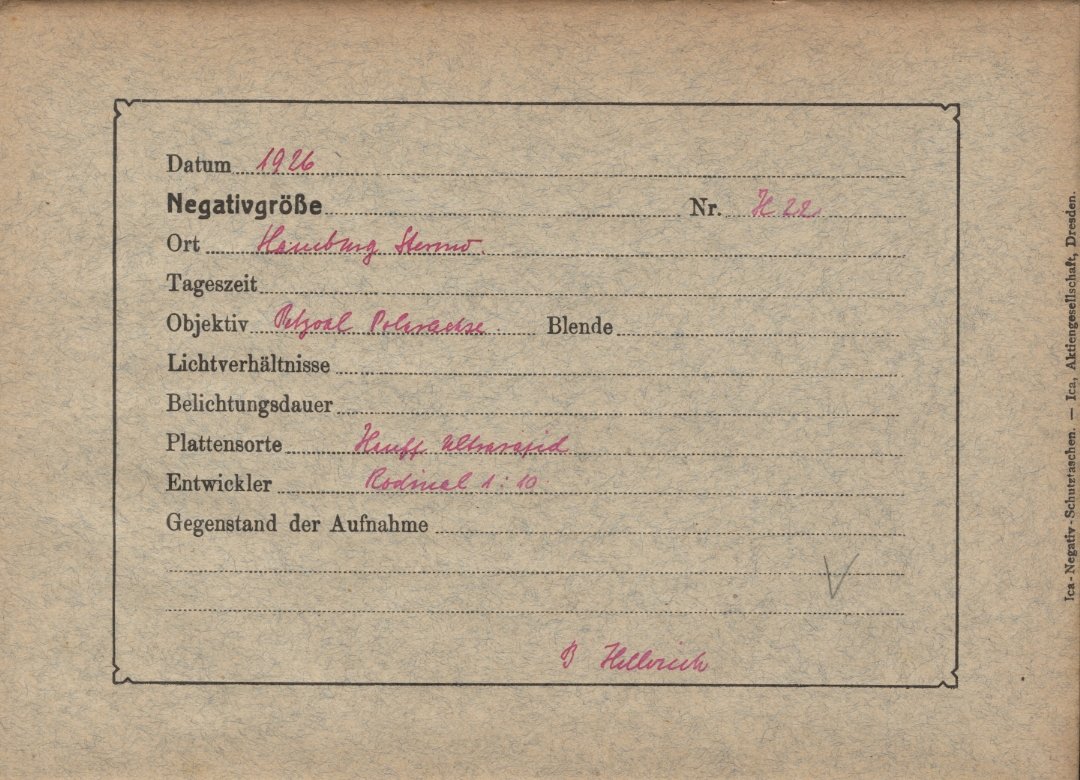 Datum 1926
Negativgröße Nr. H 22
Ort Hamburg Sternw.
Tageszeit
Objektiv Petzval Blende
Lichtverhältnisse
Belichtungsdauer
Plattensorte Hauff Ultrarapid
Entwickler Rodinal 1:10
Gegenstand der Aufnahme
V
B Hellerich
Ica-Negativ-Schutztaschen. — Ica, Aktiengesellschaft, Dresden.